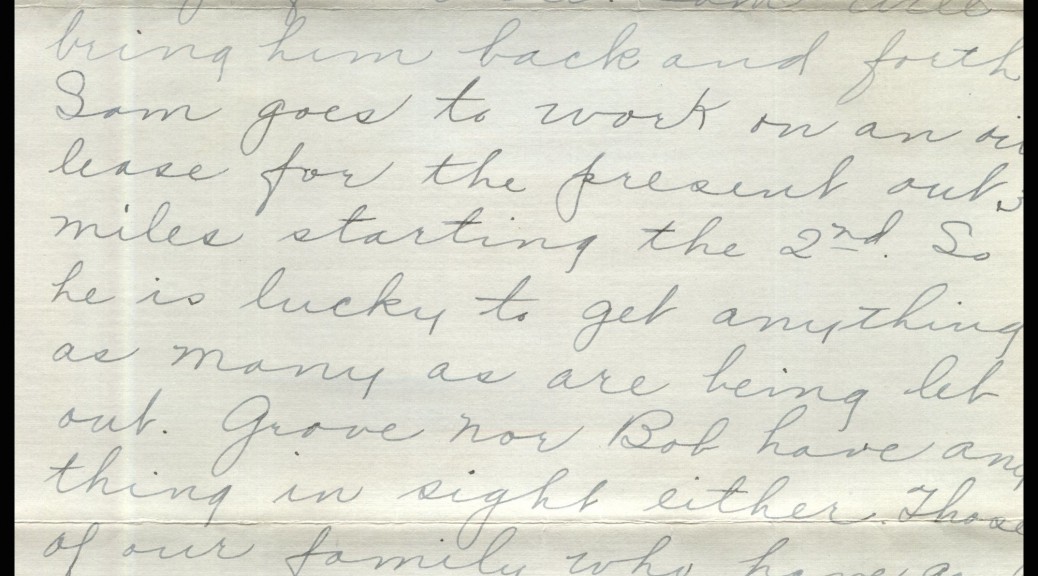 bring him back and forth
Sam goes to work on an oil
lease for the present out 3
miles starting the 2nd. So
he is lucky to get anything
as many as are being let
out. Grove nor Bob have any
thing in sight either. Those
of our family who have a